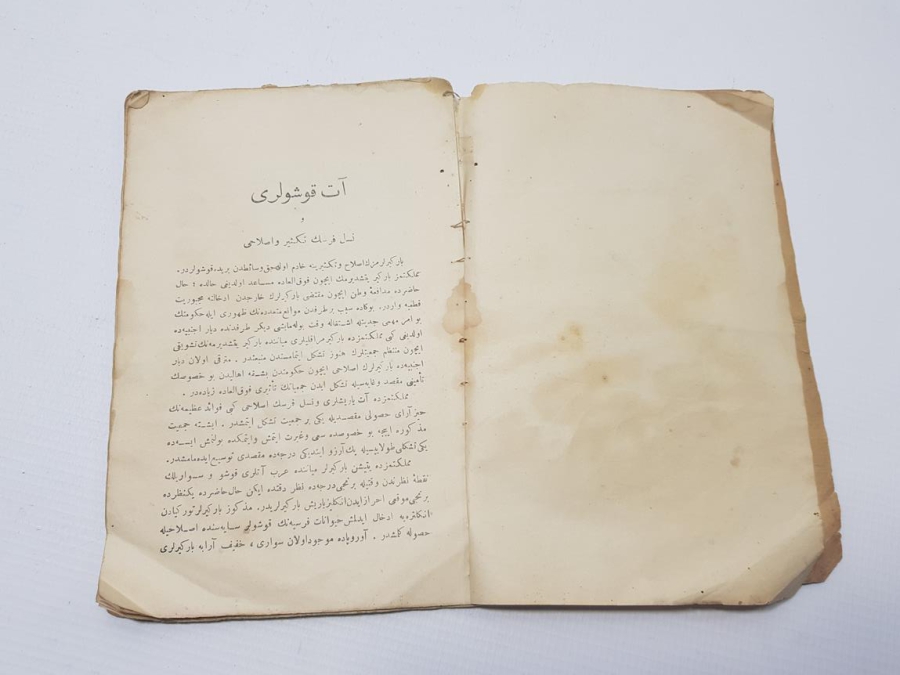 آت قوشولری
و
نسل فرسك تكثیر و اصلاحی
بارکیرلرمزك اصلاح و تكثیرینه خادم اوله‌جق وسائطدن بریده قوشولردر.
مملكتمز بارکیر یتشدیرمك ایچون فوق‌العاده مساعد اولدیغی حالده ؛ حال
حاضرده مدافعهٔ وطن ایچون مقتضی بارکیرلرك خارجدن ادخالنه مجبوریت
قطعیه واردر. بوكاده سبب بر طرفدن موانع متعدده‌نك ظهوری ایله حكومتك
بو امر مهمی جدیتله اشتغاله وقت بوله‌مامشی دیكر طرفدنده دیار اجنبیه‌ده
اولدیغی كبی مملكتمزده بارکیر مراقلیلری میاننده بارکیر یتشدیرمه‌نك تشویقی
ایچون منتظم جمعیتلرك هنوز تشكل ایتمامسندن منبعثدر . مترقی اولان دیار
اجنبیه‌ده بارکیرلرك اصلاحی ایچون حكومتدن بشقه اهالینك بو خصوصك
تأمینی مقصد و غایه‌سیله تشكل ایدن جمعیاتك تأثیری فوق‌العاده زیاده‌در .
مملكتمزده آت یاریشلری و نسل فرسك اصلاحی كبی فوائد عظیمه‌نك
حیز آرای حصولی مقصدیله یكی بر جمعیت تشكل ایتمشدر . ایشته جمعیت
مذكوره ایچه بو خصوصده سعی و غیرت ایتمش و ایتمكده بولنمش ایسه‌ده
یكی تشكلی طولاییسیله پك آرزو ایتدیكی درجه‌ده مقصدی توسیع ایده‌مامشدر.
مملكتمزده یتیشن بارکیرلر میاننده عرب آتلری قوشو و سواریلك
نقطهٔ نظرندن وقتیله برنجی درجه‌ده نظر دقتده ایكن حال حاضرده یكنظرده
برنجی موقعی احراز ایدن انكلیز یاریش بارکیرلریدر. مذكور بارکیرلر توركیادن
انكلتره‌یه ادخال ایدلمش حیوانات فرسیه‌نك قوشولر سایه‌سنده اصلاحیله
حصوله كلمشدر . آوروپاده موجود اولان سواری ، خفیف آرابه بارکیرلری